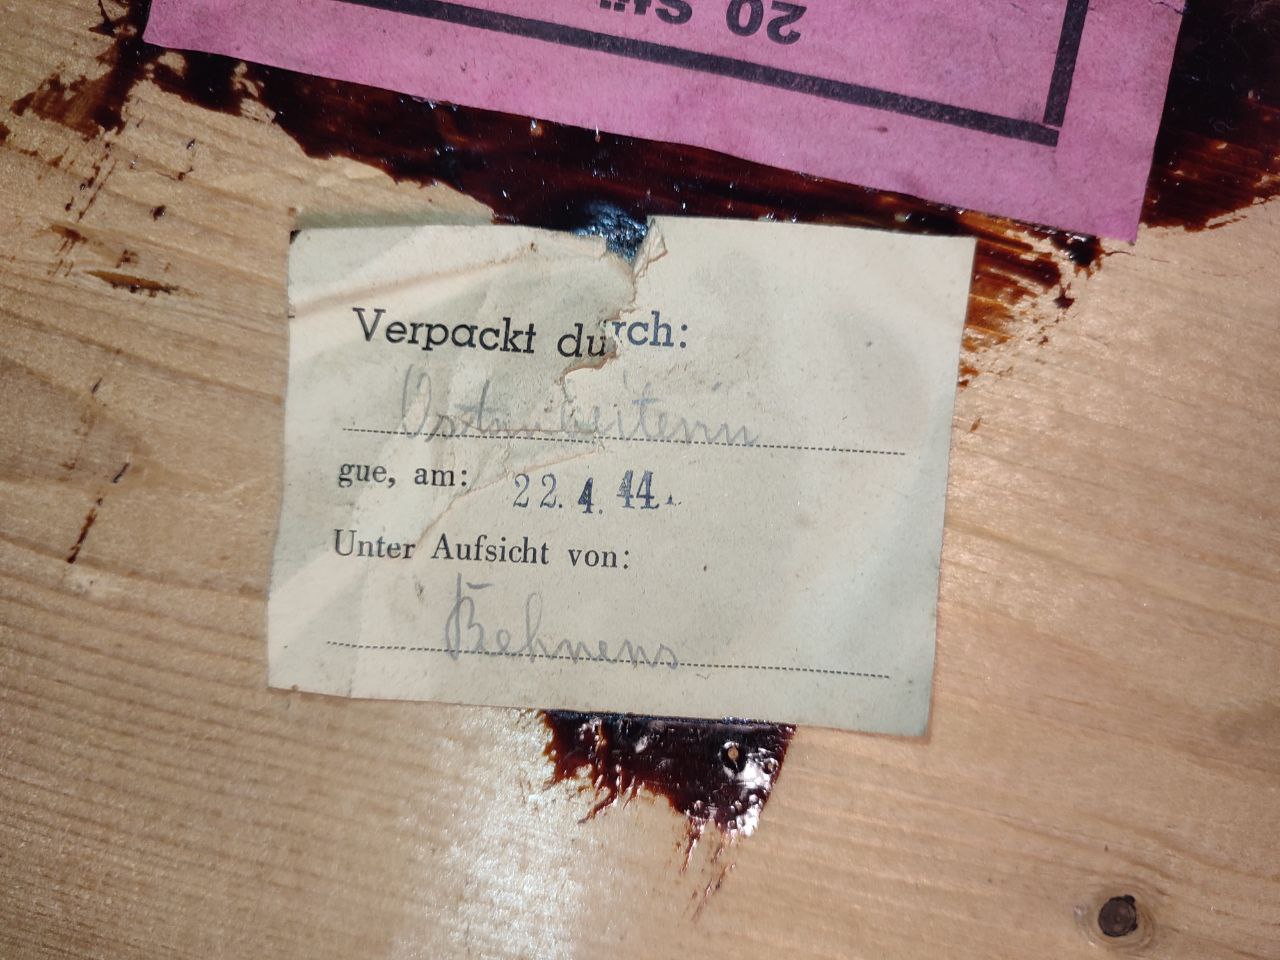 20 Stü
Verpackt durch:
Ostarbeiterin
gue, am: 22. 4. 44.
Unter Aufsicht von:
Behnens